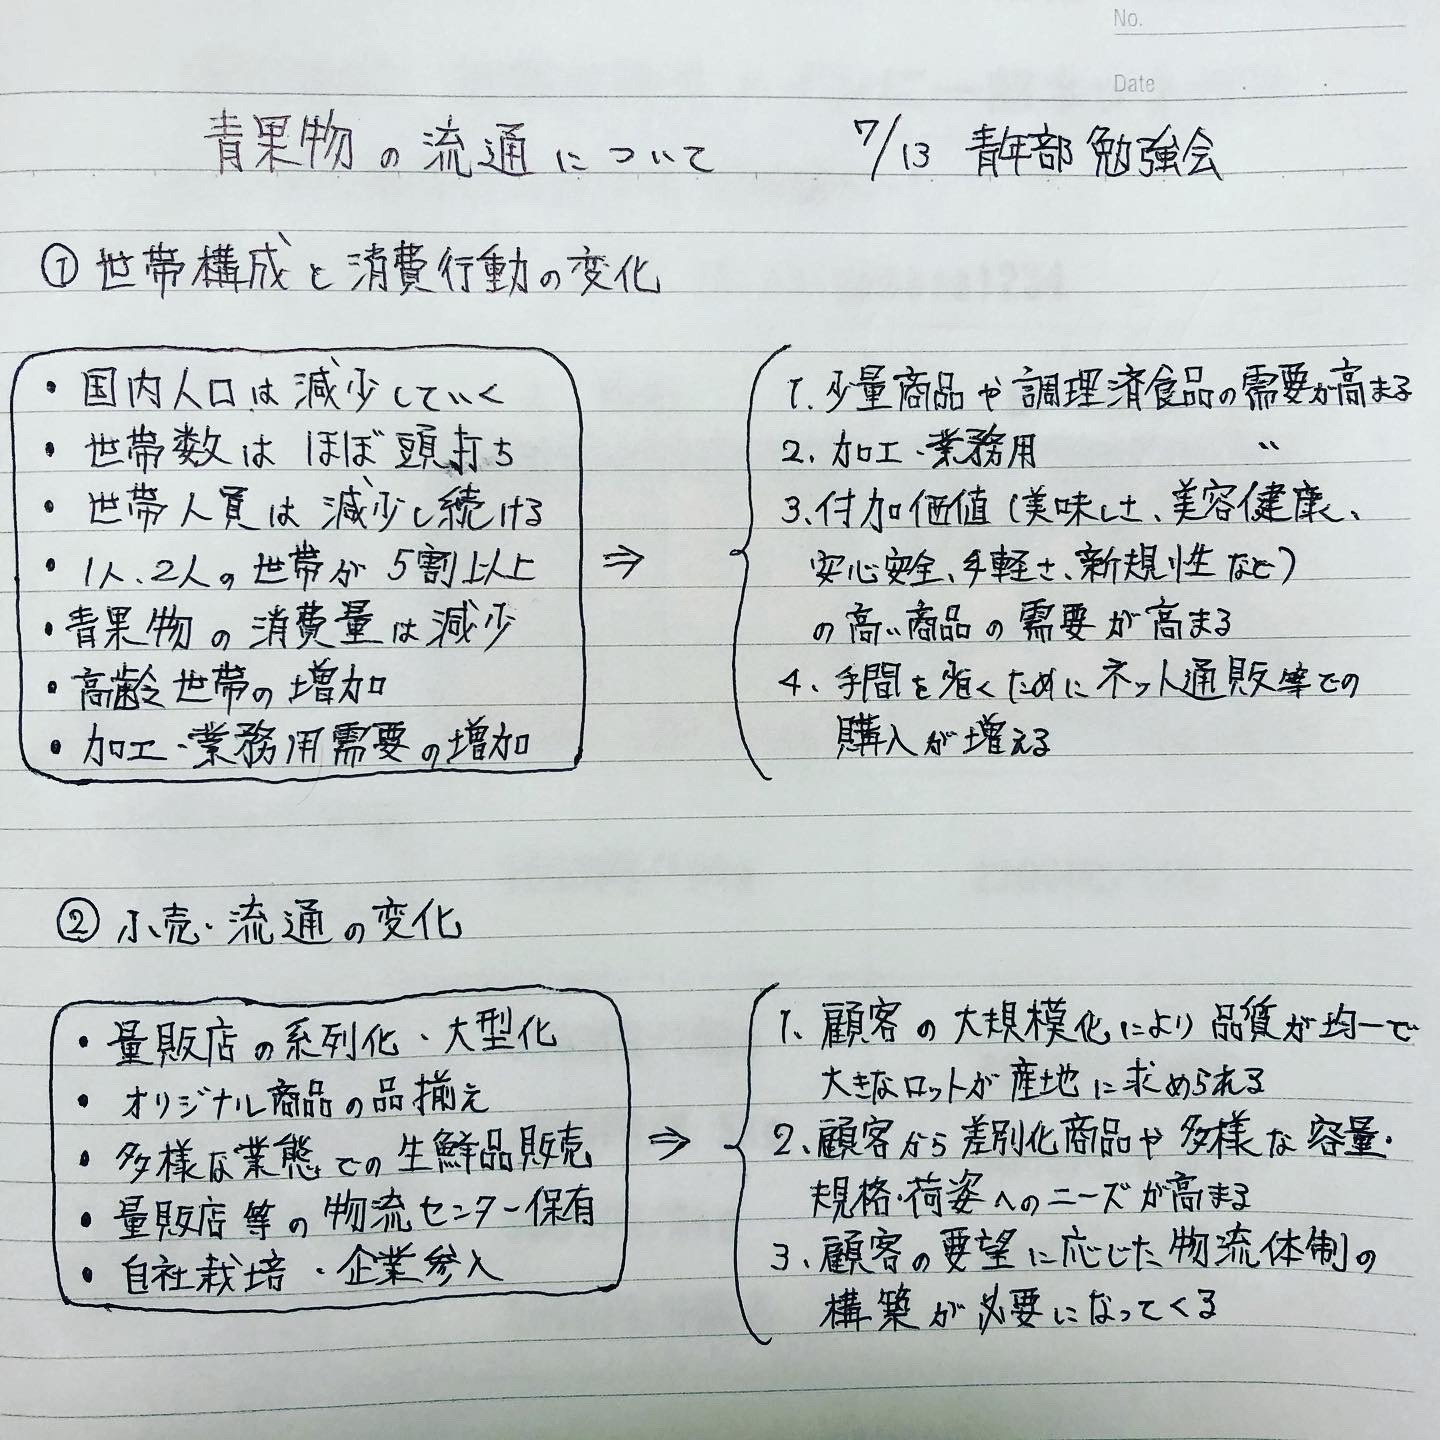 No.
Date
青果物の流通について 7/13 青年部 勉強会
① 世帯構成と消費行動の変化
・国内人口は減少していく
・世帯数はほぼ頭打ち
・世帯人員は減少し続ける
・1人、2人の世帯が5割以上
・青果物の消費量は減少
・高齢世帯の増加
・加工・業務用需要の増加
⇒
1. 少量商品や調理済食品の需要が高まる
2. 加工・業務用 〃
3. 付加価値(美味しさ、美容健康、
安心安全、手軽さ、新規性など)
の高い商品の需要が高まる
4. 手間を省くためにネット通販等での
購入が増える
② 小売・流通の変化
・量販店の系列化・大型化
・オリジナル商品の品揃え
・多様な業態での生鮮品販売
・量販店等の物流センター保有
・自社栽培・企業参入
⇒
1. 顧客の大規模化により品質が均一で
大きなロットが産地に求められる
2. 顧客から差別化商品や多様な容量・
規格・荷姿へのニーズが高まる
3. 顧客の要望に応じた物流体制の
構築が必要になってくる